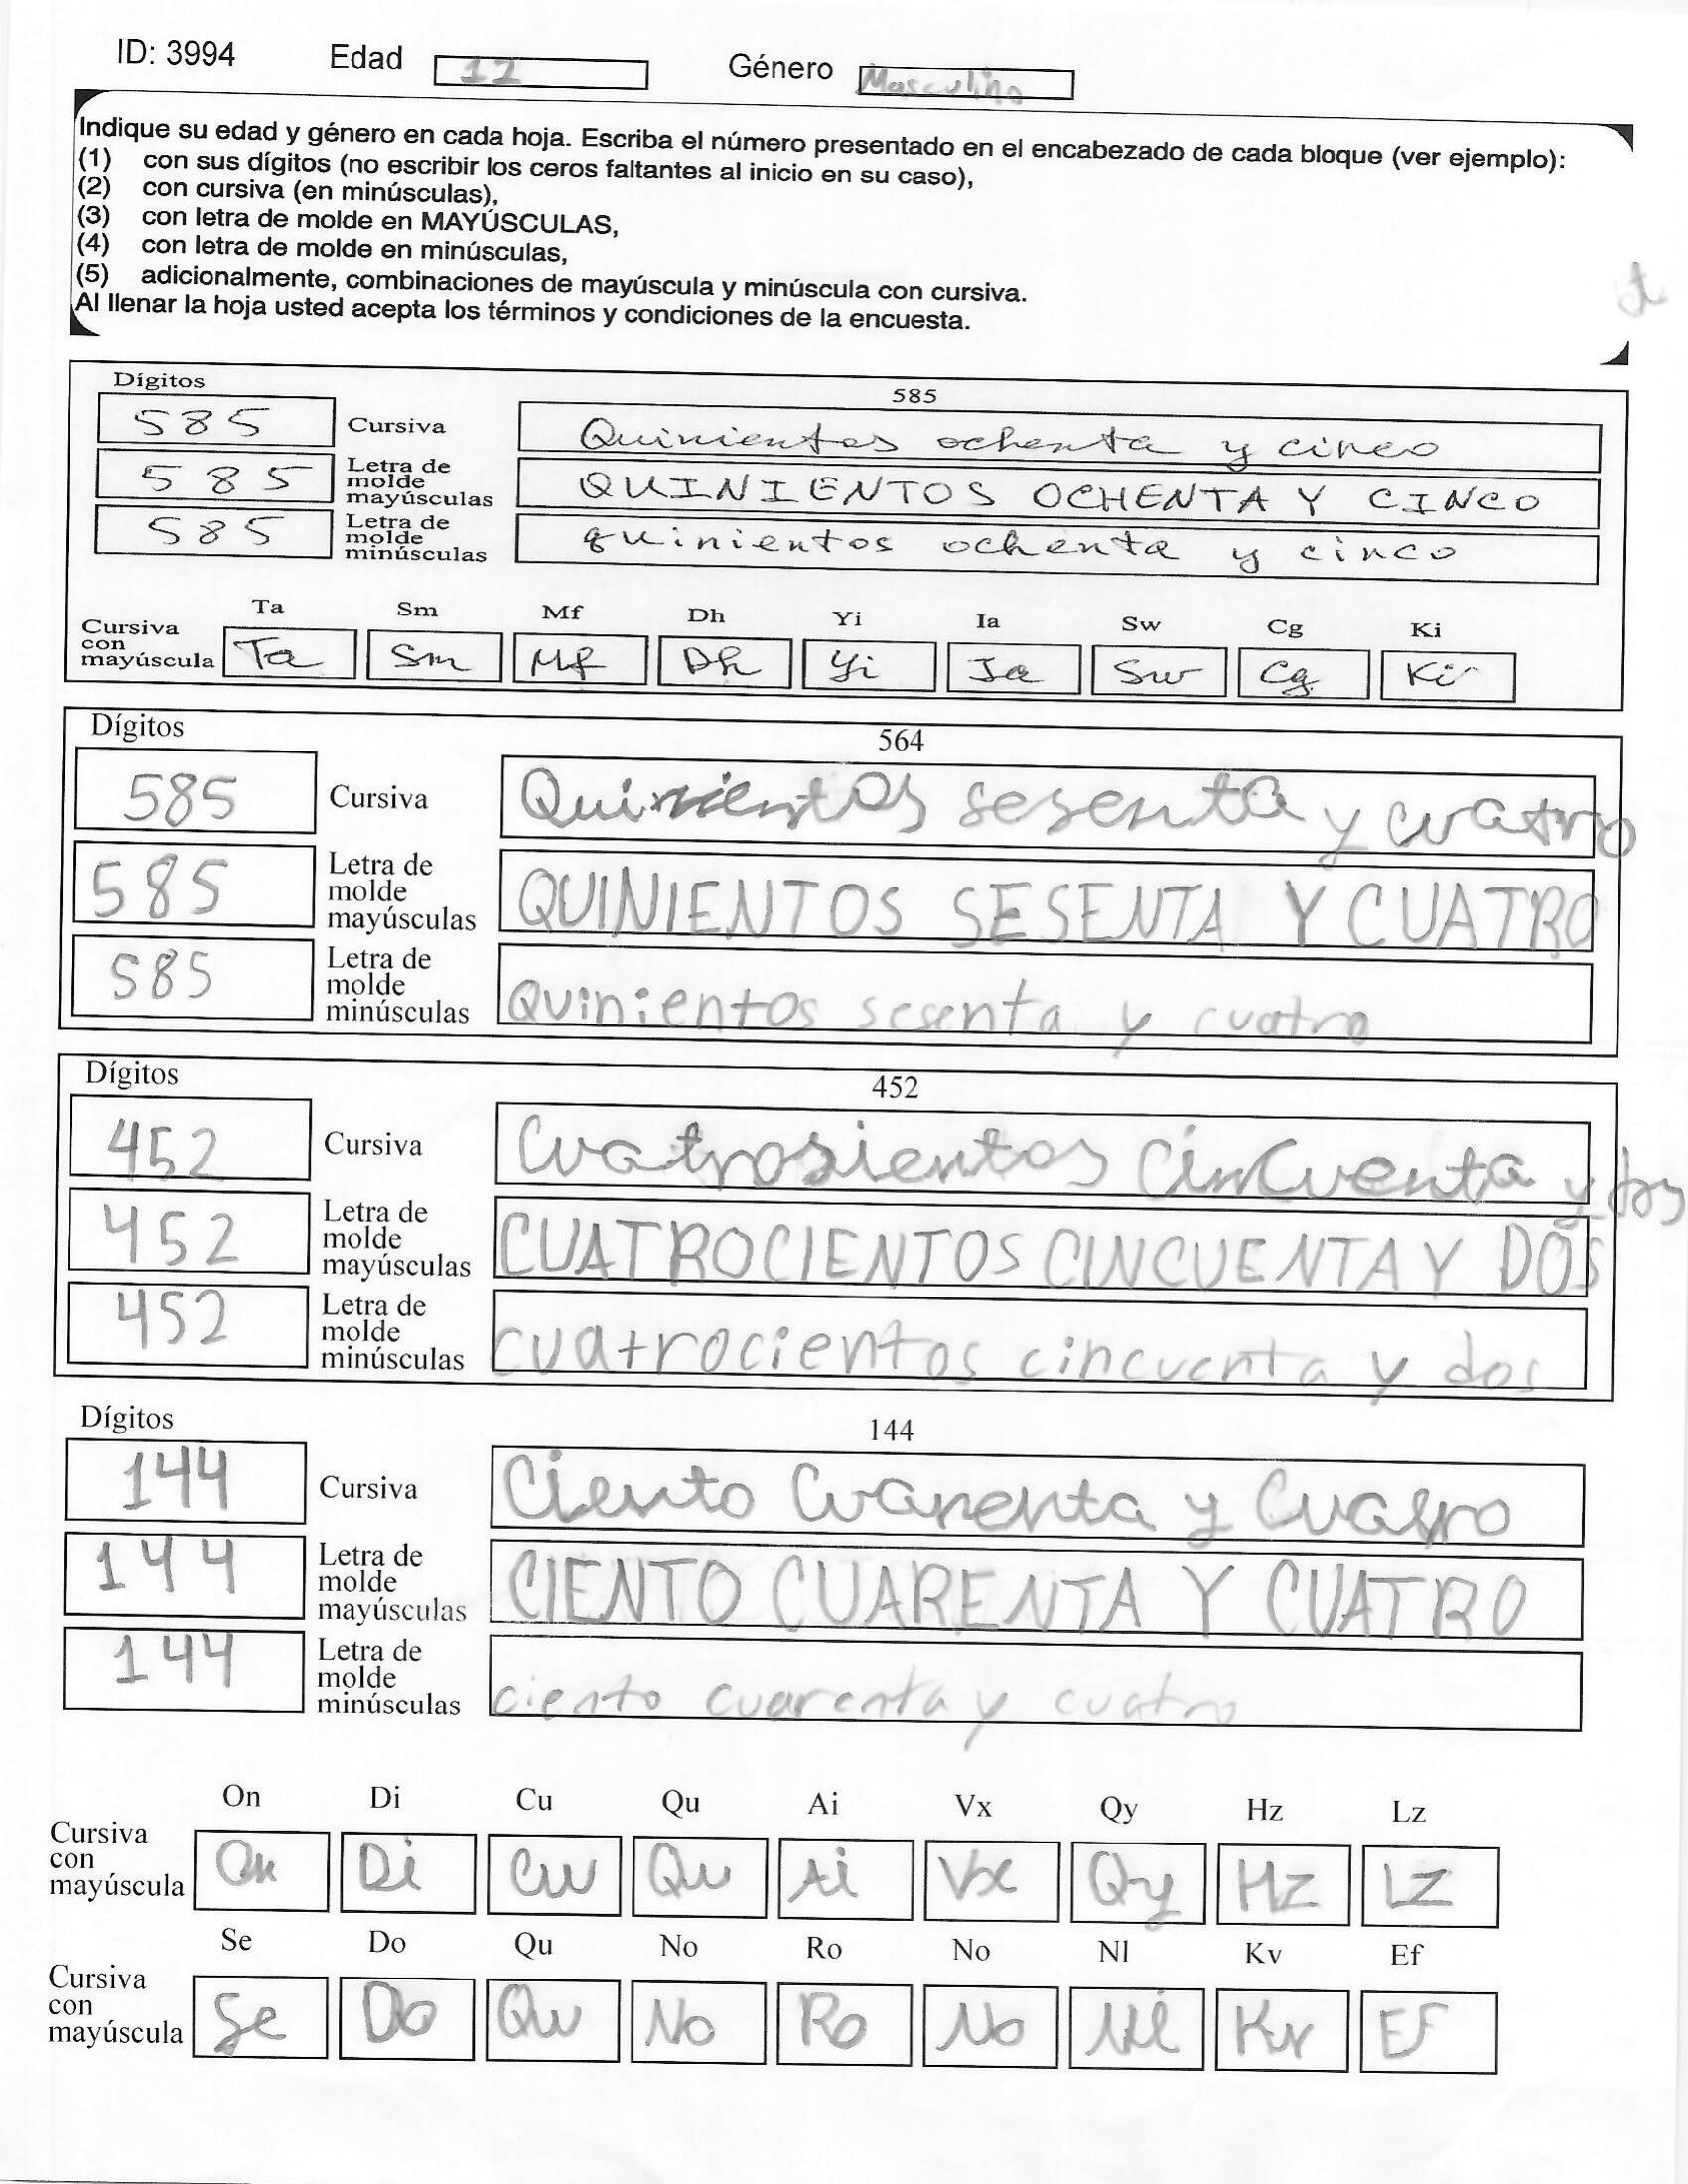 ID: 3994 Edad 12 Género Masculino
Indique su edad y género en cada hoja. Escriba el número presentado en el encabezado de cada bloque (ver ejemplo):
(1) con sus dígitos (no escribir los ceros faltantes al inicio en su caso),
(2) con cursiva (en minúsculas),
(3) con letra de molde en MAYÚSCULAS,
(4) con letra de molde en minúsculas,
(5) adicionalmente, combinaciones de mayúscula y minúscula con cursiva.
Al llenar la hoja usted acepta los términos y condiciones de la encuesta.
Dígitos 585
585 Cursiva Quinientos ochenta y cinco
585 Letra de molde mayúsculas QUINIENTOS OCHENTA Y CINCO
585 Letra de molde minúsculas quinientos ochenta y cinco
Ta Sm Mf Dh Yi Ia Sw Cg Ki
Cursiva con mayúscula Ta Sm Mf Dh Yi Ia Sw Cg Ki
Dígitos 564
585 Cursiva Quinientos sesenta y cuatro
585 Letra de molde mayúsculas QUINIENTOS SESENTA Y CUATRO
585 Letra de molde minúsculas Quinientos sesenta y cuatro
Dígitos 452
452 Cursiva Cuatrosientos CinCuenta y dos
452 Letra de molde mayúsculas CUATROCIENTOS CINCUENTA Y DOS
452 Letra de molde minúsculas cuatrocientos cincuenta y dos
Dígitos 144
144 Cursiva Ciento Cuarenta y Cuatro
144 Letra de molde mayúsculas CIENTO CUARENTA Y CUATRO
144 Letra de molde minúsculas ciento cuarenta y cuatro
On Di Cu Qu Ai Vx Qy Hz Lz
Cursiva con mayúscula On Di Cu Qu Ai Vx Qy Hz Lz
Se Do Qu No Ro No Nl Kv Ef
Cursiva con mayúscula Se Do Qu No Ro No Nl Kv EF